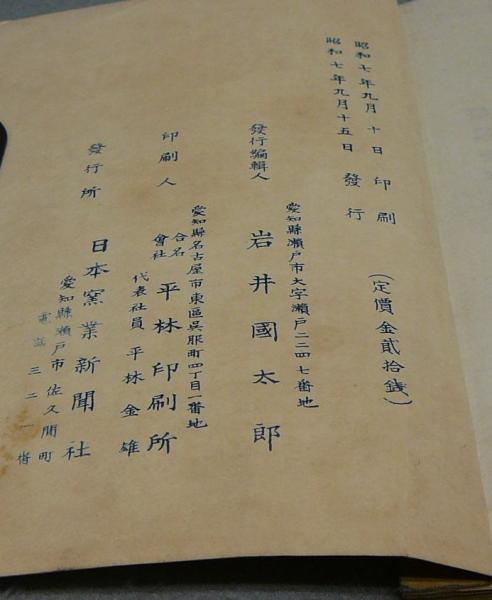 昭和七年九月十日印刷
昭和七年九月十五日發行
(定價金貳拾錢)
愛知縣瀨戶市大字瀨戶二二四七番地
發行編輯人 岩井國太郎
愛知縣名古屋市東區吳服町四丁目一番地
印刷人 合名會社 平林印刷所
代表社員 平林金雄
發行所 日本窯業新聞社
愛知縣瀨戶市佐久間町
電話三二一番